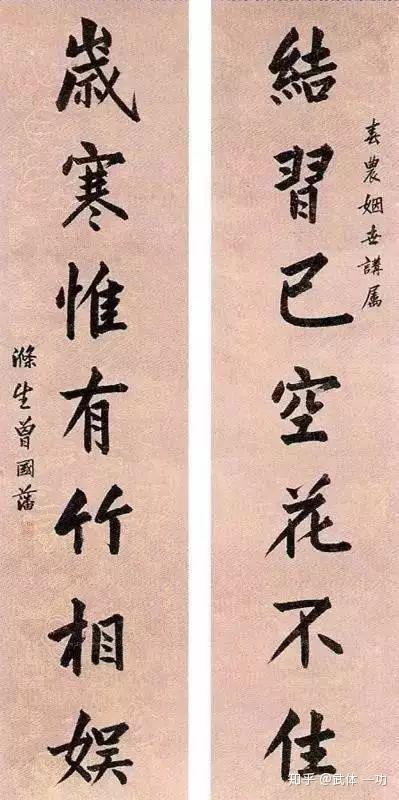 春農姻世講属
結習已空花不住
歲寒惟有竹相娛
滌生曾國藩
知乎 @武体一功